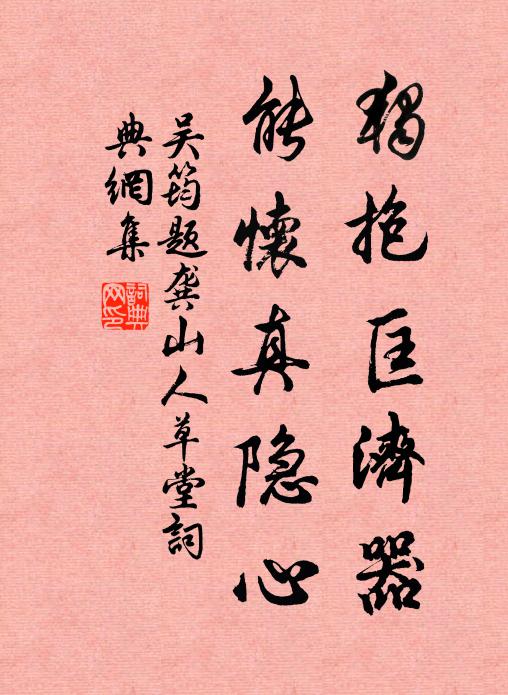 獨抱匡濟器
能懷真隐心
吴筠題龔山人草堂詞
典網集
詞典
网印